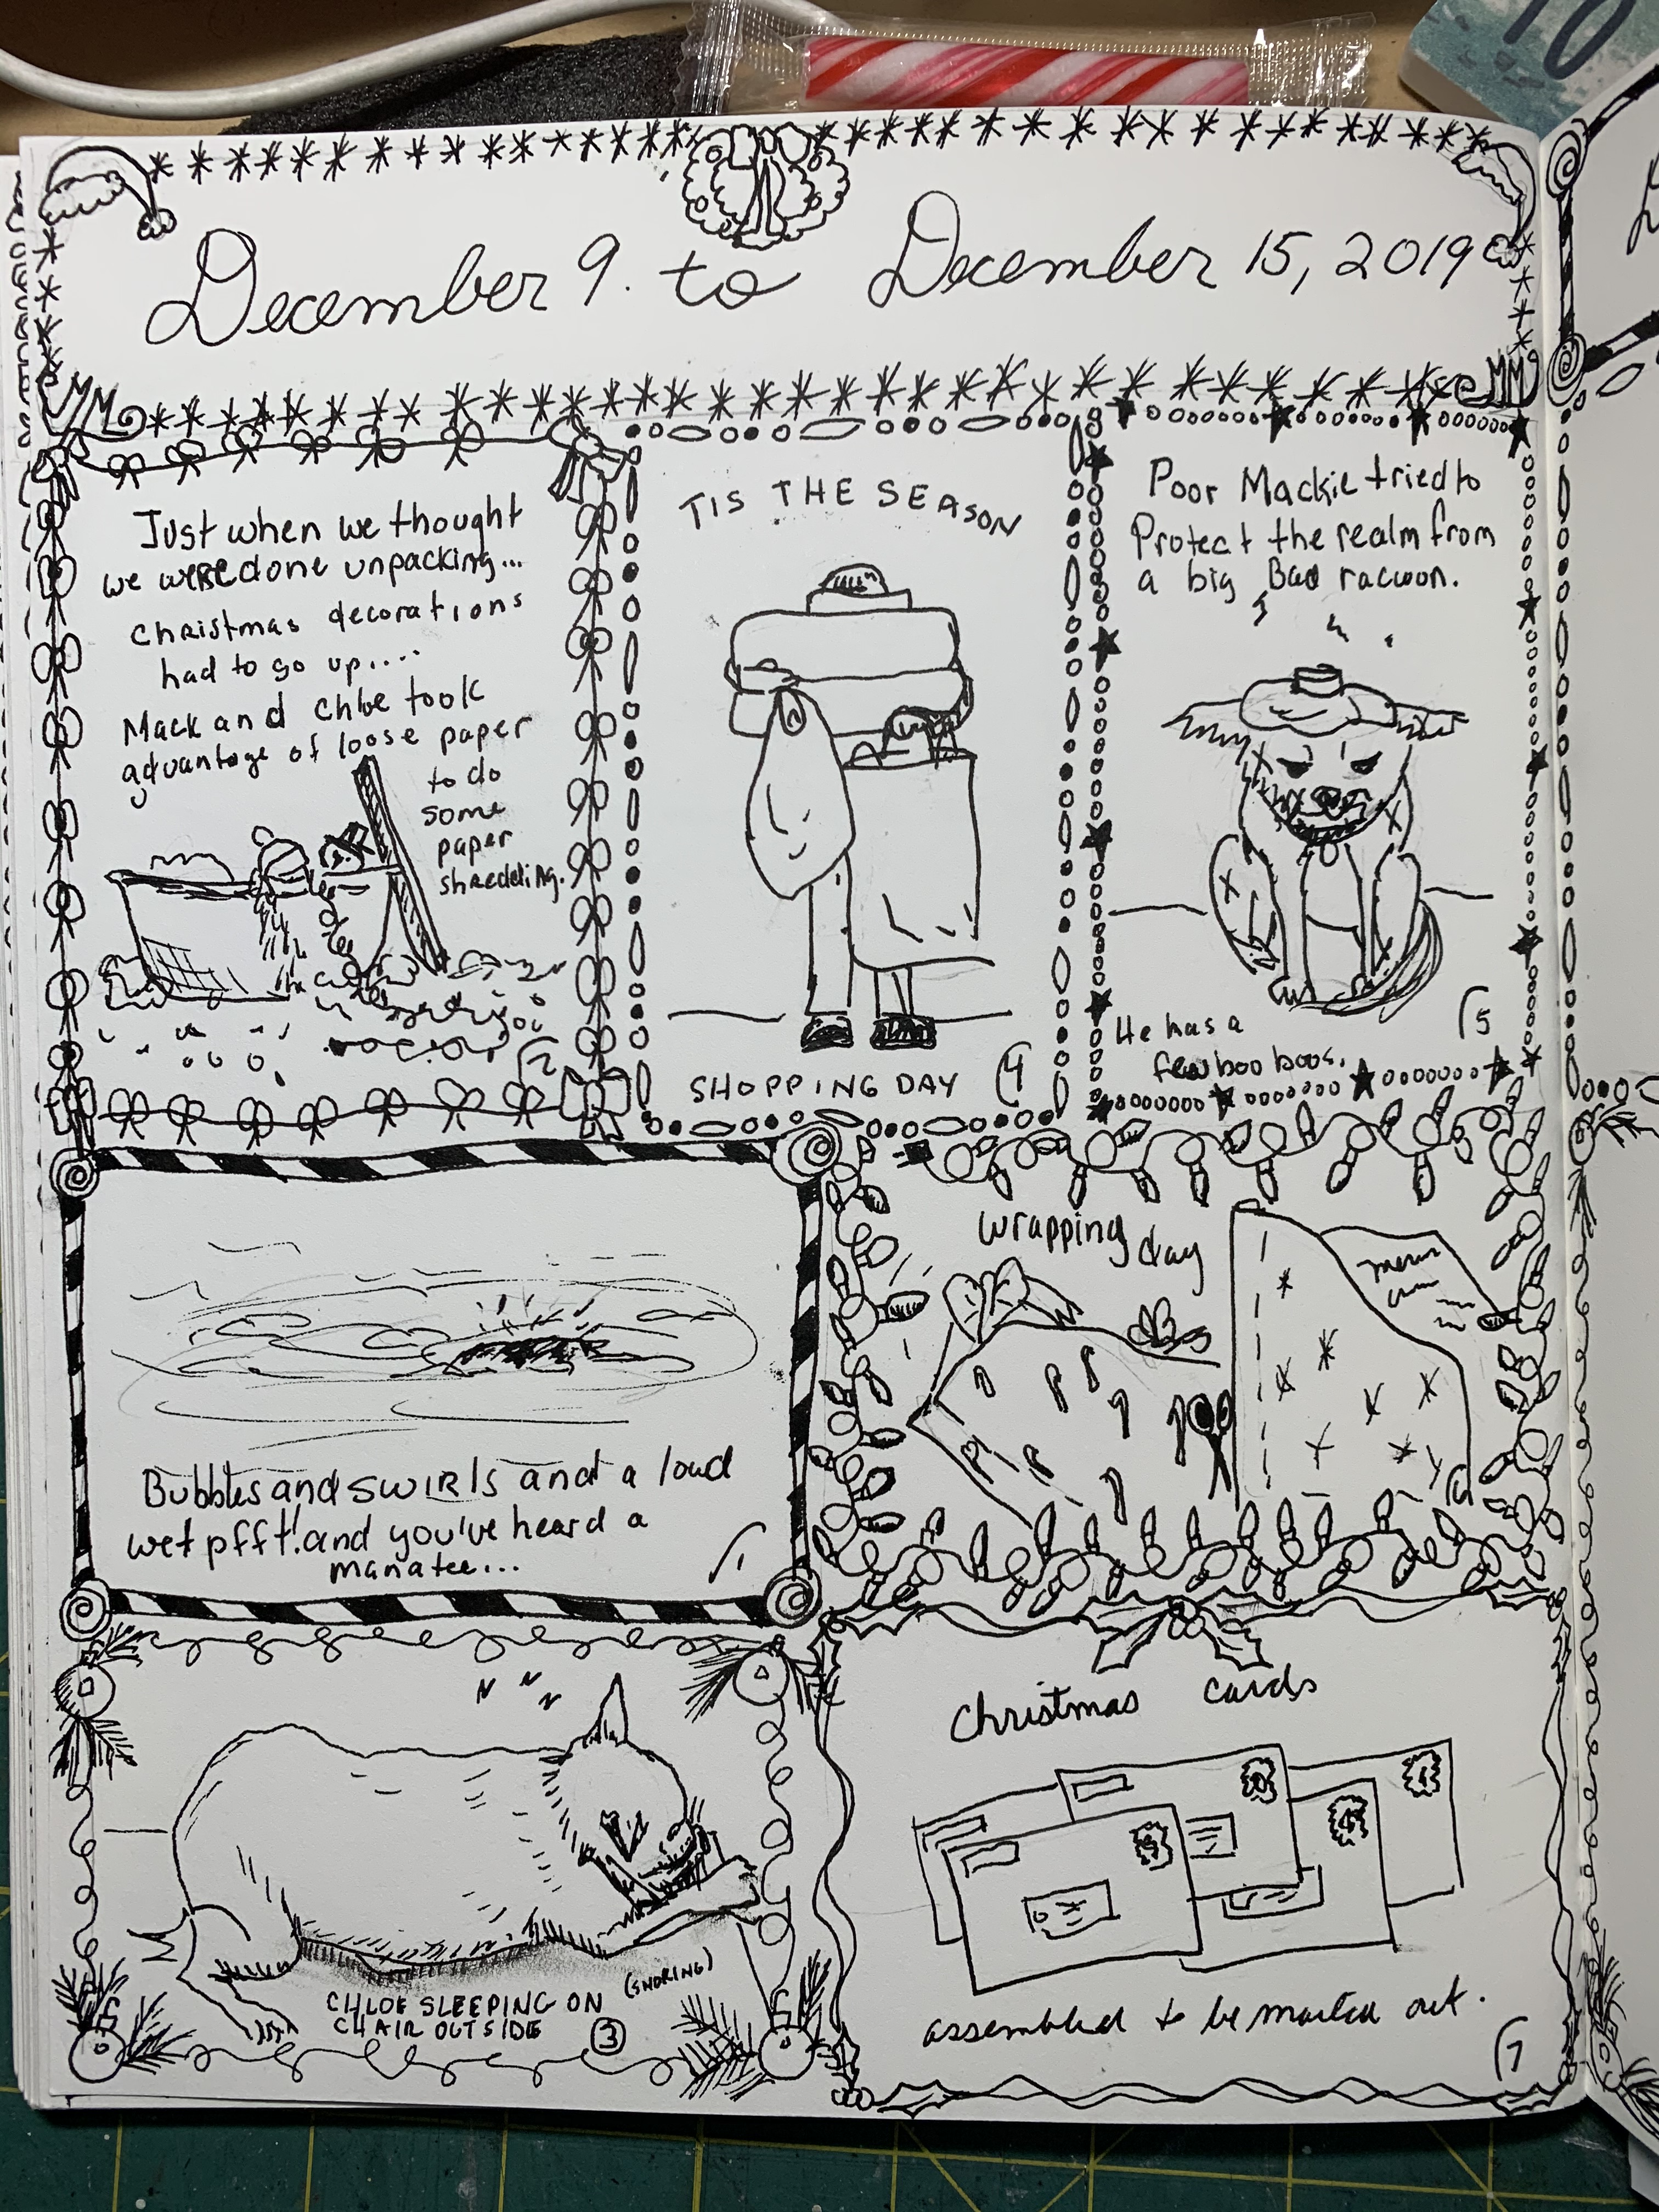 10
December 9. to December 15, 2019
Just when we thought
we were done unpacking...
christmas decorations
had to go up....
Mack and Chloe took
advantage of loose paper
to do
some
paper
shredding.
2
TIS THE SEASON
SHOPPING DAY
4
Poor Mackie tried to
Protect the realm from
a big Bad racoon.
He has a
few boo boos.
5
Bubbles and SWIRLS and a loud
wet pfft! and you've heard a
manatee...
1
wrapping
day
6
CHLOE SLEEPING ON
CHAIR OUTSIDE
(SNORING)
3
christmas cards
assembled to be mailed out.
7